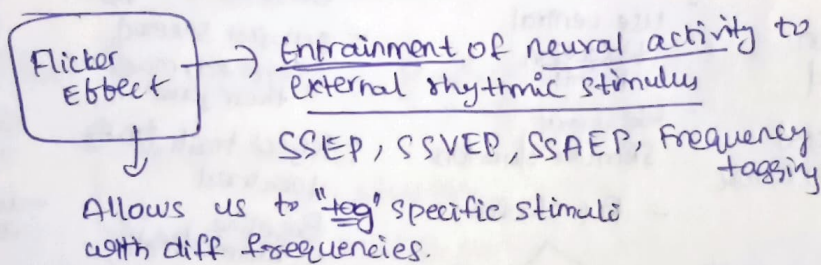 Flicker Effect → Entrainment of neural activity to
external rhythmic stimulus
SSEP, SSVEP, SSAEP, Frequency
tagging
Allows us to "tag" specific stimuli
with diff frequencies.